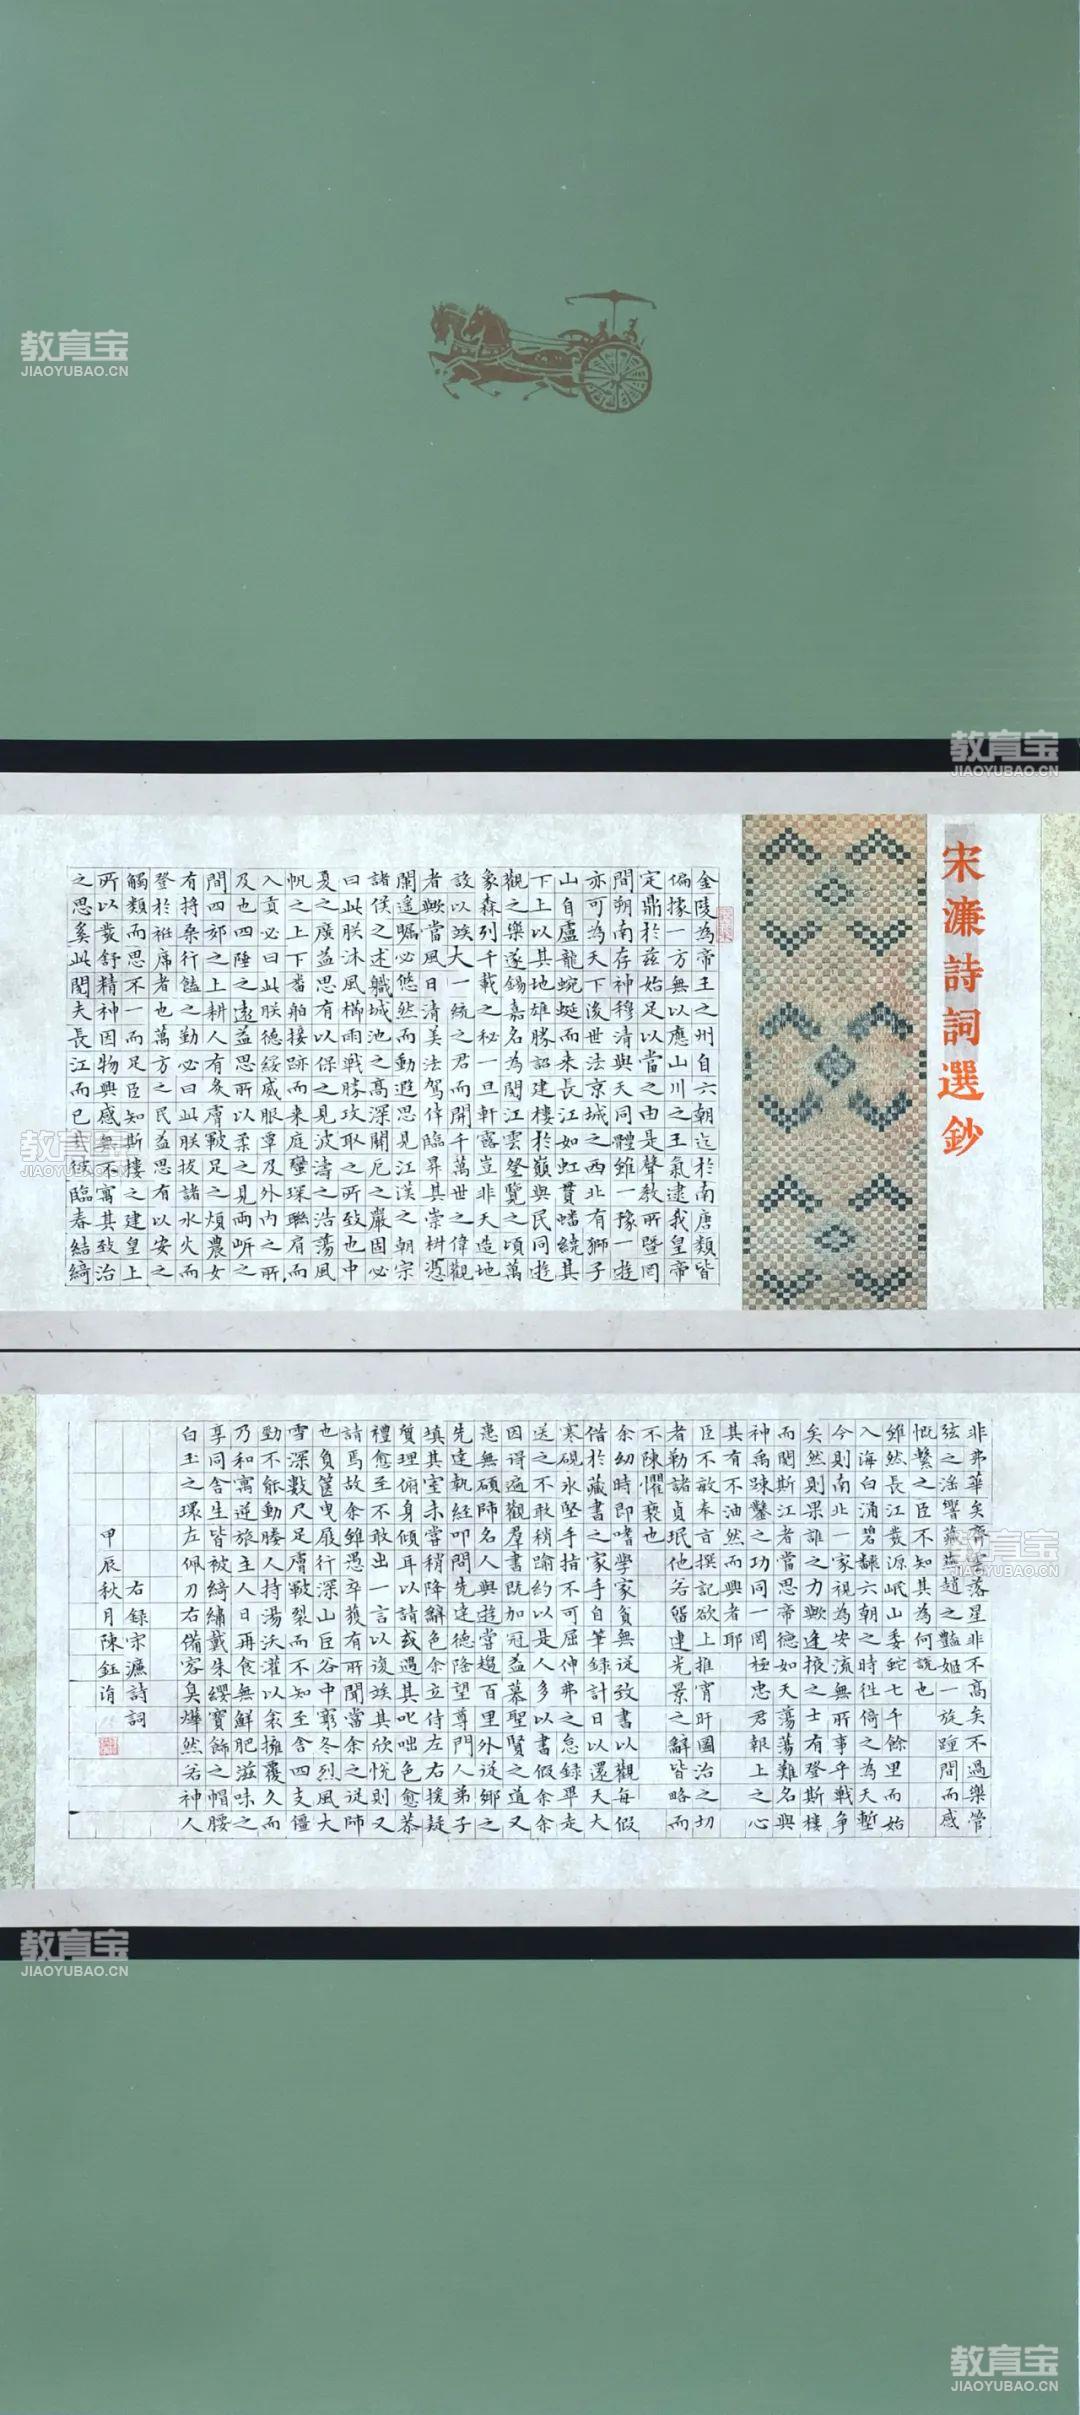 教育宝
JIAOYUBAO.CN
教育宝
JIAOYUBAO.CN
宋濂詩詞選鈔
金陵為帝王之州自六朝迄於南唐類皆
偏據一方無以應山川之王氣逮我皇帝
定鼎於茲始足以當之由是聲教所暨罔
間朔南存神穆清與天同體雖一豫一遊
亦可為天下後世法京城之西北有獅子
山自盧龍蜿蜒而來長江如虹貫蟠繞其
下上以其地雄勝詔建樓於巔與民同遊
觀之樂遂錫嘉名為閱江雲登覽之頃萬
象森列千載之秘一旦軒露豈非天造地
設以俟大一統之君而開千萬世之偉觀
者歟當風日清美法駕偉臨昇其崇栟憑
闌遙矚必悠然而動遐思見江漢之朝宗
諸侯之述職城池之高深關阨之嚴固必
曰此朕沐風櫛雨戰勝攻取之所致也中
夏之廣益思有以保之見波濤之浩蕩風
帆之上下番舶接跡而來庭蠻琛聯肩而
入貢必曰此朕德綏威服覃及外內之所
及也四陲之遠益思所以柔之見兩岸之
間四郊之上耕人有炙膚皸足之煩農女
有捋桑行饁之勤必曰此朕拔諸水火而
登於衽席者也萬方之民益思有以安之
觸類而思不一而足臣知斯樓之建皇上
所以發舒精神因物興感無不寓其致治
之思奚此閱夫長江而已哉彼臨春結綺
教育宝
JIAOYUBAO.CN
非弗華矣齊雲落星非不高矣不過樂管
弦之淫響藏燕趙之豔姬一旋踵間而感
慨繫之臣不知其為何說也
雖然長江發源岷山委蛇七千餘里而始
入海白涌碧翻六朝之時徃倚之為天塹
今則南北一家視為安流無所事乎戰爭
矣然則果誰之力歟逢掖之士有登斯樓
而閱斯江者當思帝德如天蕩蕩難名與
神禹踈鑿之功同一罔極忠君報上之心
其有不油然而興者耶
臣不敏奉旨撰記欲上推宵旰圖治之切
者勒諸貞珉他若留連光景之辭皆略而
不陳懼褻也
余幼時即嗜學家貧無從致書以觀每假
借於藏書之家手自筆錄計日以還天大
寒硯冰堅手指不可屈伸弗之怠錄畢走
送之不敢稍踰約以是人多以書假余余
因得遍觀羣書既加冠益慕聖賢之道又
患無碩師名人與遊嘗趨百里外從鄉之
先達執經叩問先達德隆望尊門人弟子
填其室未嘗稍降辭色余立侍左右援疑
質理俯身傾耳以請或遇其叱咄色愈恭
禮愈至不敢出一言以復俟其欣悅則又
請焉故余雖愚卒獲有所聞當余之從師
也負篋曳屣行深山巨谷中窮冬烈風大
雪深數尺足膚皸裂而不知至舍四支僵
勁不能動媵人持湯沃灌以衾擁覆久而
乃和寓逆旅主人日再食無鮮肥滋味之
享同舍生皆被綺繡戴朱纓寶飾之帽腰
白玉之環左佩刀右備容臭燁然若神人
右錄宋濂詩詞
甲辰秋月陳鈺
教育宝
JIAOYUBAO.CN
教育宝
JIAOYUBAO.CN
教育宝
JIAOYUBAO.CN